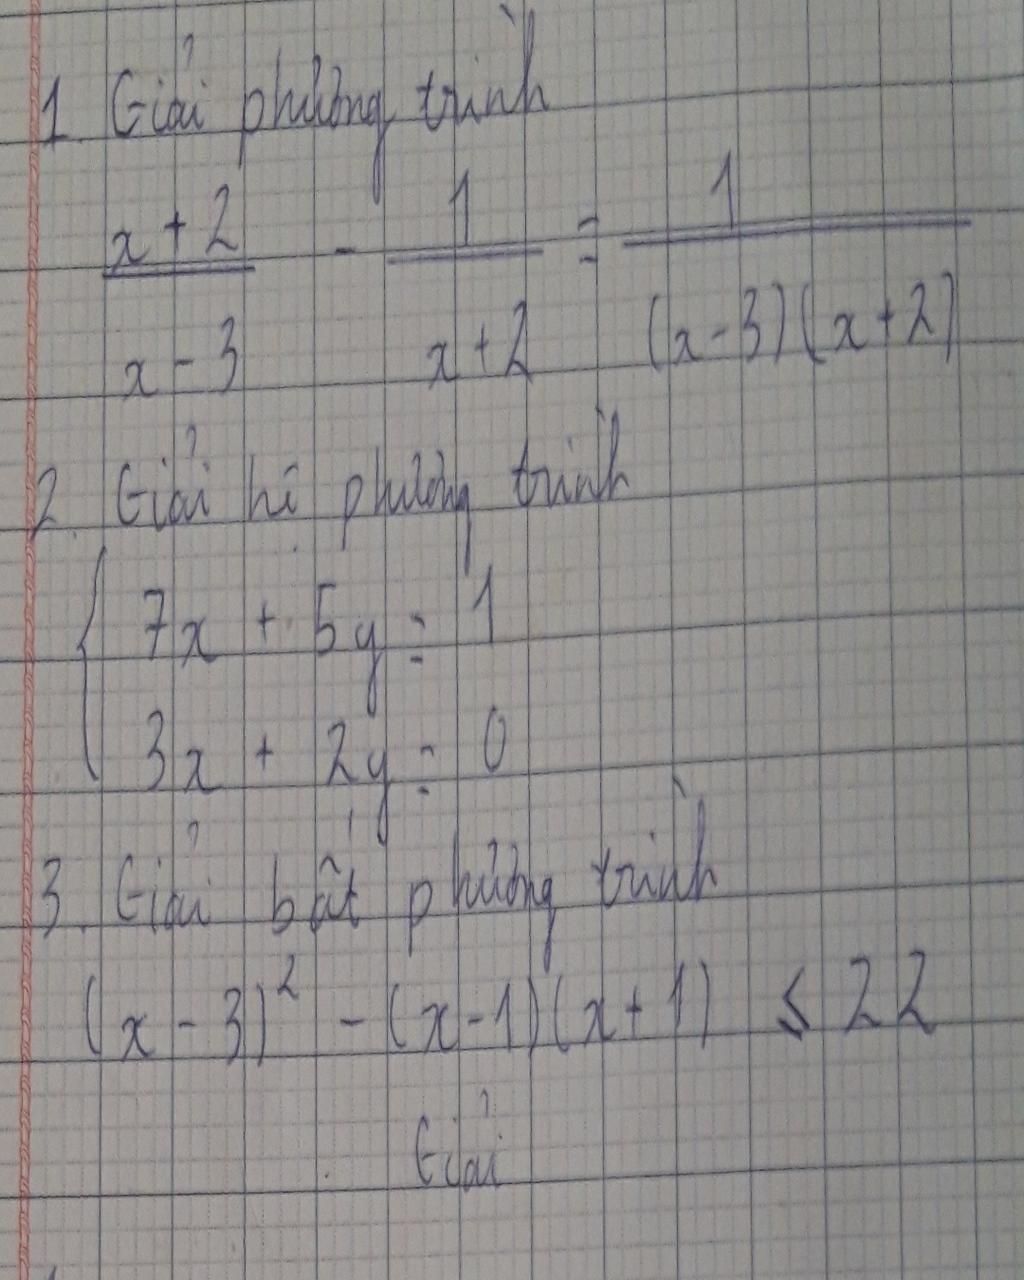 1. Giải phương trình
x + 2 / x - 3 - 1 / x + 2 = 1 / (x - 3)(x + 2)
2. Giải hệ phương trình
{ 7x + 5y = 1
3x + 2y = 0
3. Giải bất phương trình
(x - 3)² - (x - 1)(x + 1) ≤ 22
Giải